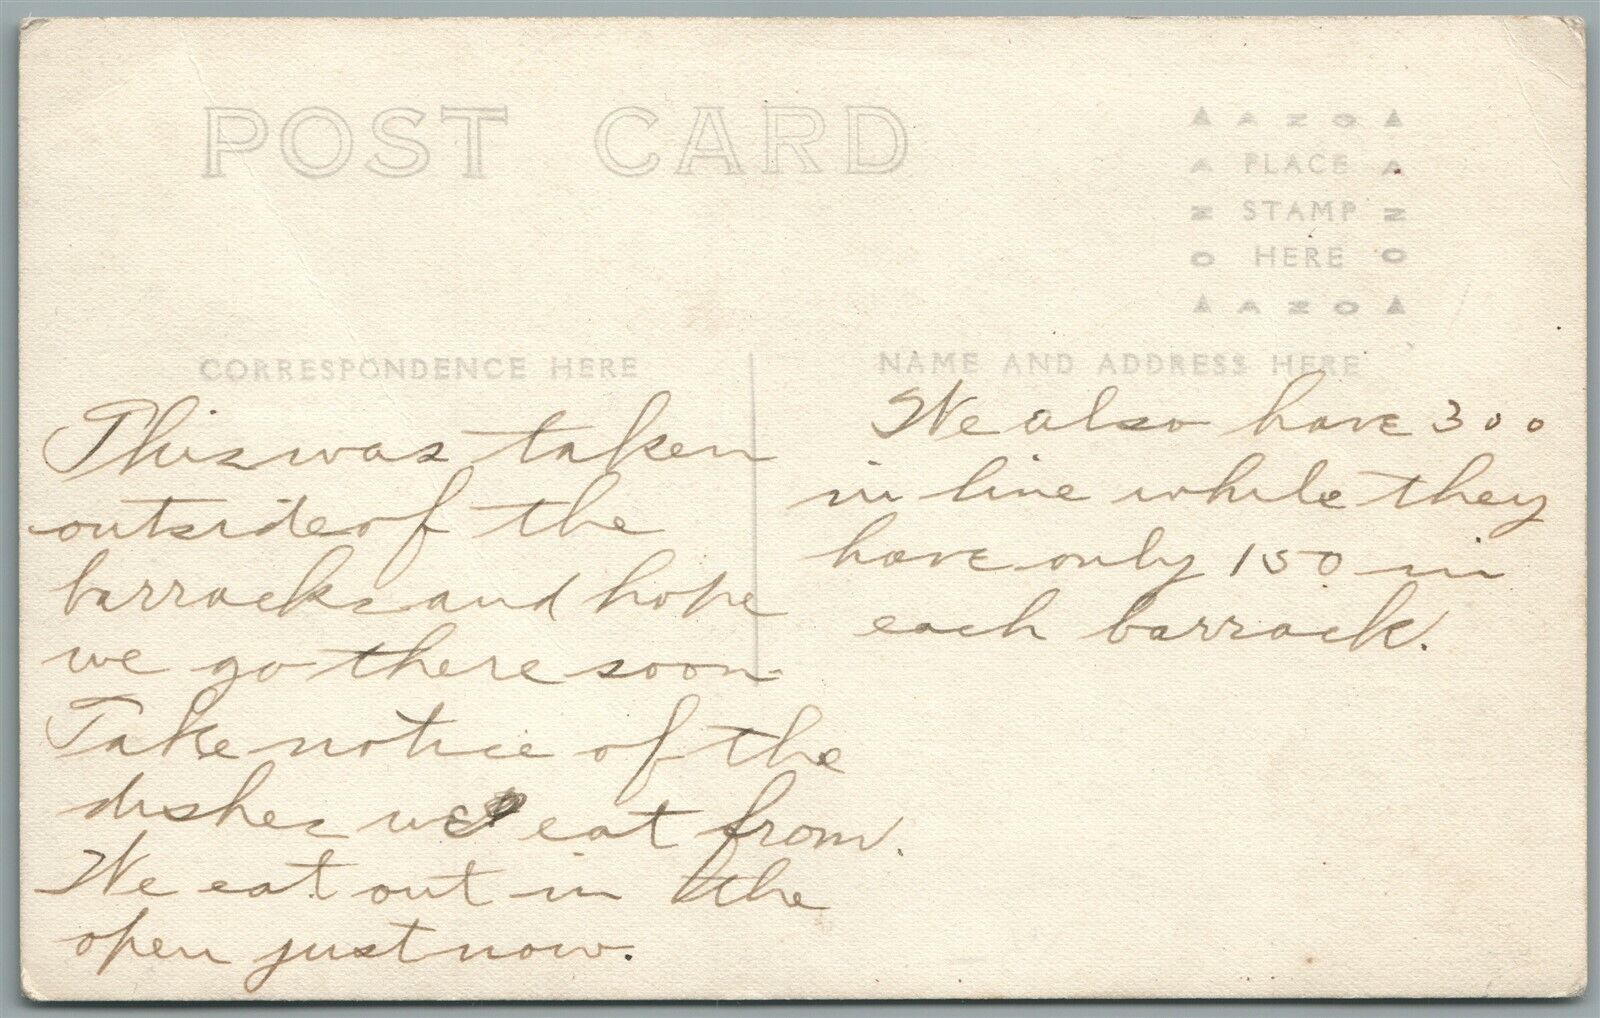 POST CARD
▲ A Z O ▲
A PLACE A
Z STAMP Z
O HERE O
▲ A Z O ▲
CORRESPONDENCE HERE
This was taken
outside of the
barracks and hope
we go there soon.
Take notice of the
dishes we eat from.
We eat out in the
open just now.
NAME AND ADDRESS HERE
We also have 300
in line while they
have only 150 in
each barrack.